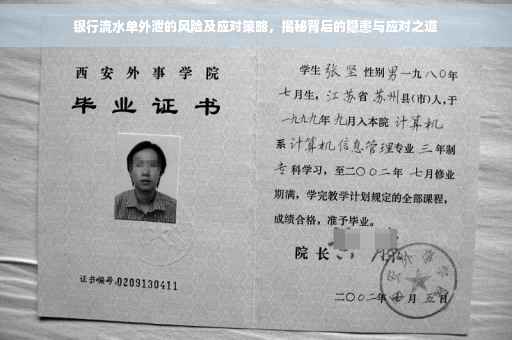 银行流水单外泄的风险及应对策略，揭秘背后的隐患与应对之道
西安外事学院
毕业证书
证书编号:0209130411
学生 张坚 性别 男 一九八〇年
七月生，江苏省 苏州县(市)人，于
一九九九年 九月入本院 计算机
系 计算机信息管理专业 三 年制
专科学习，至二〇〇二年 七月修业
期满，学完教学计划规定的全部课程，
成绩合格，准予毕业。
院长
二〇〇二年 月 五日